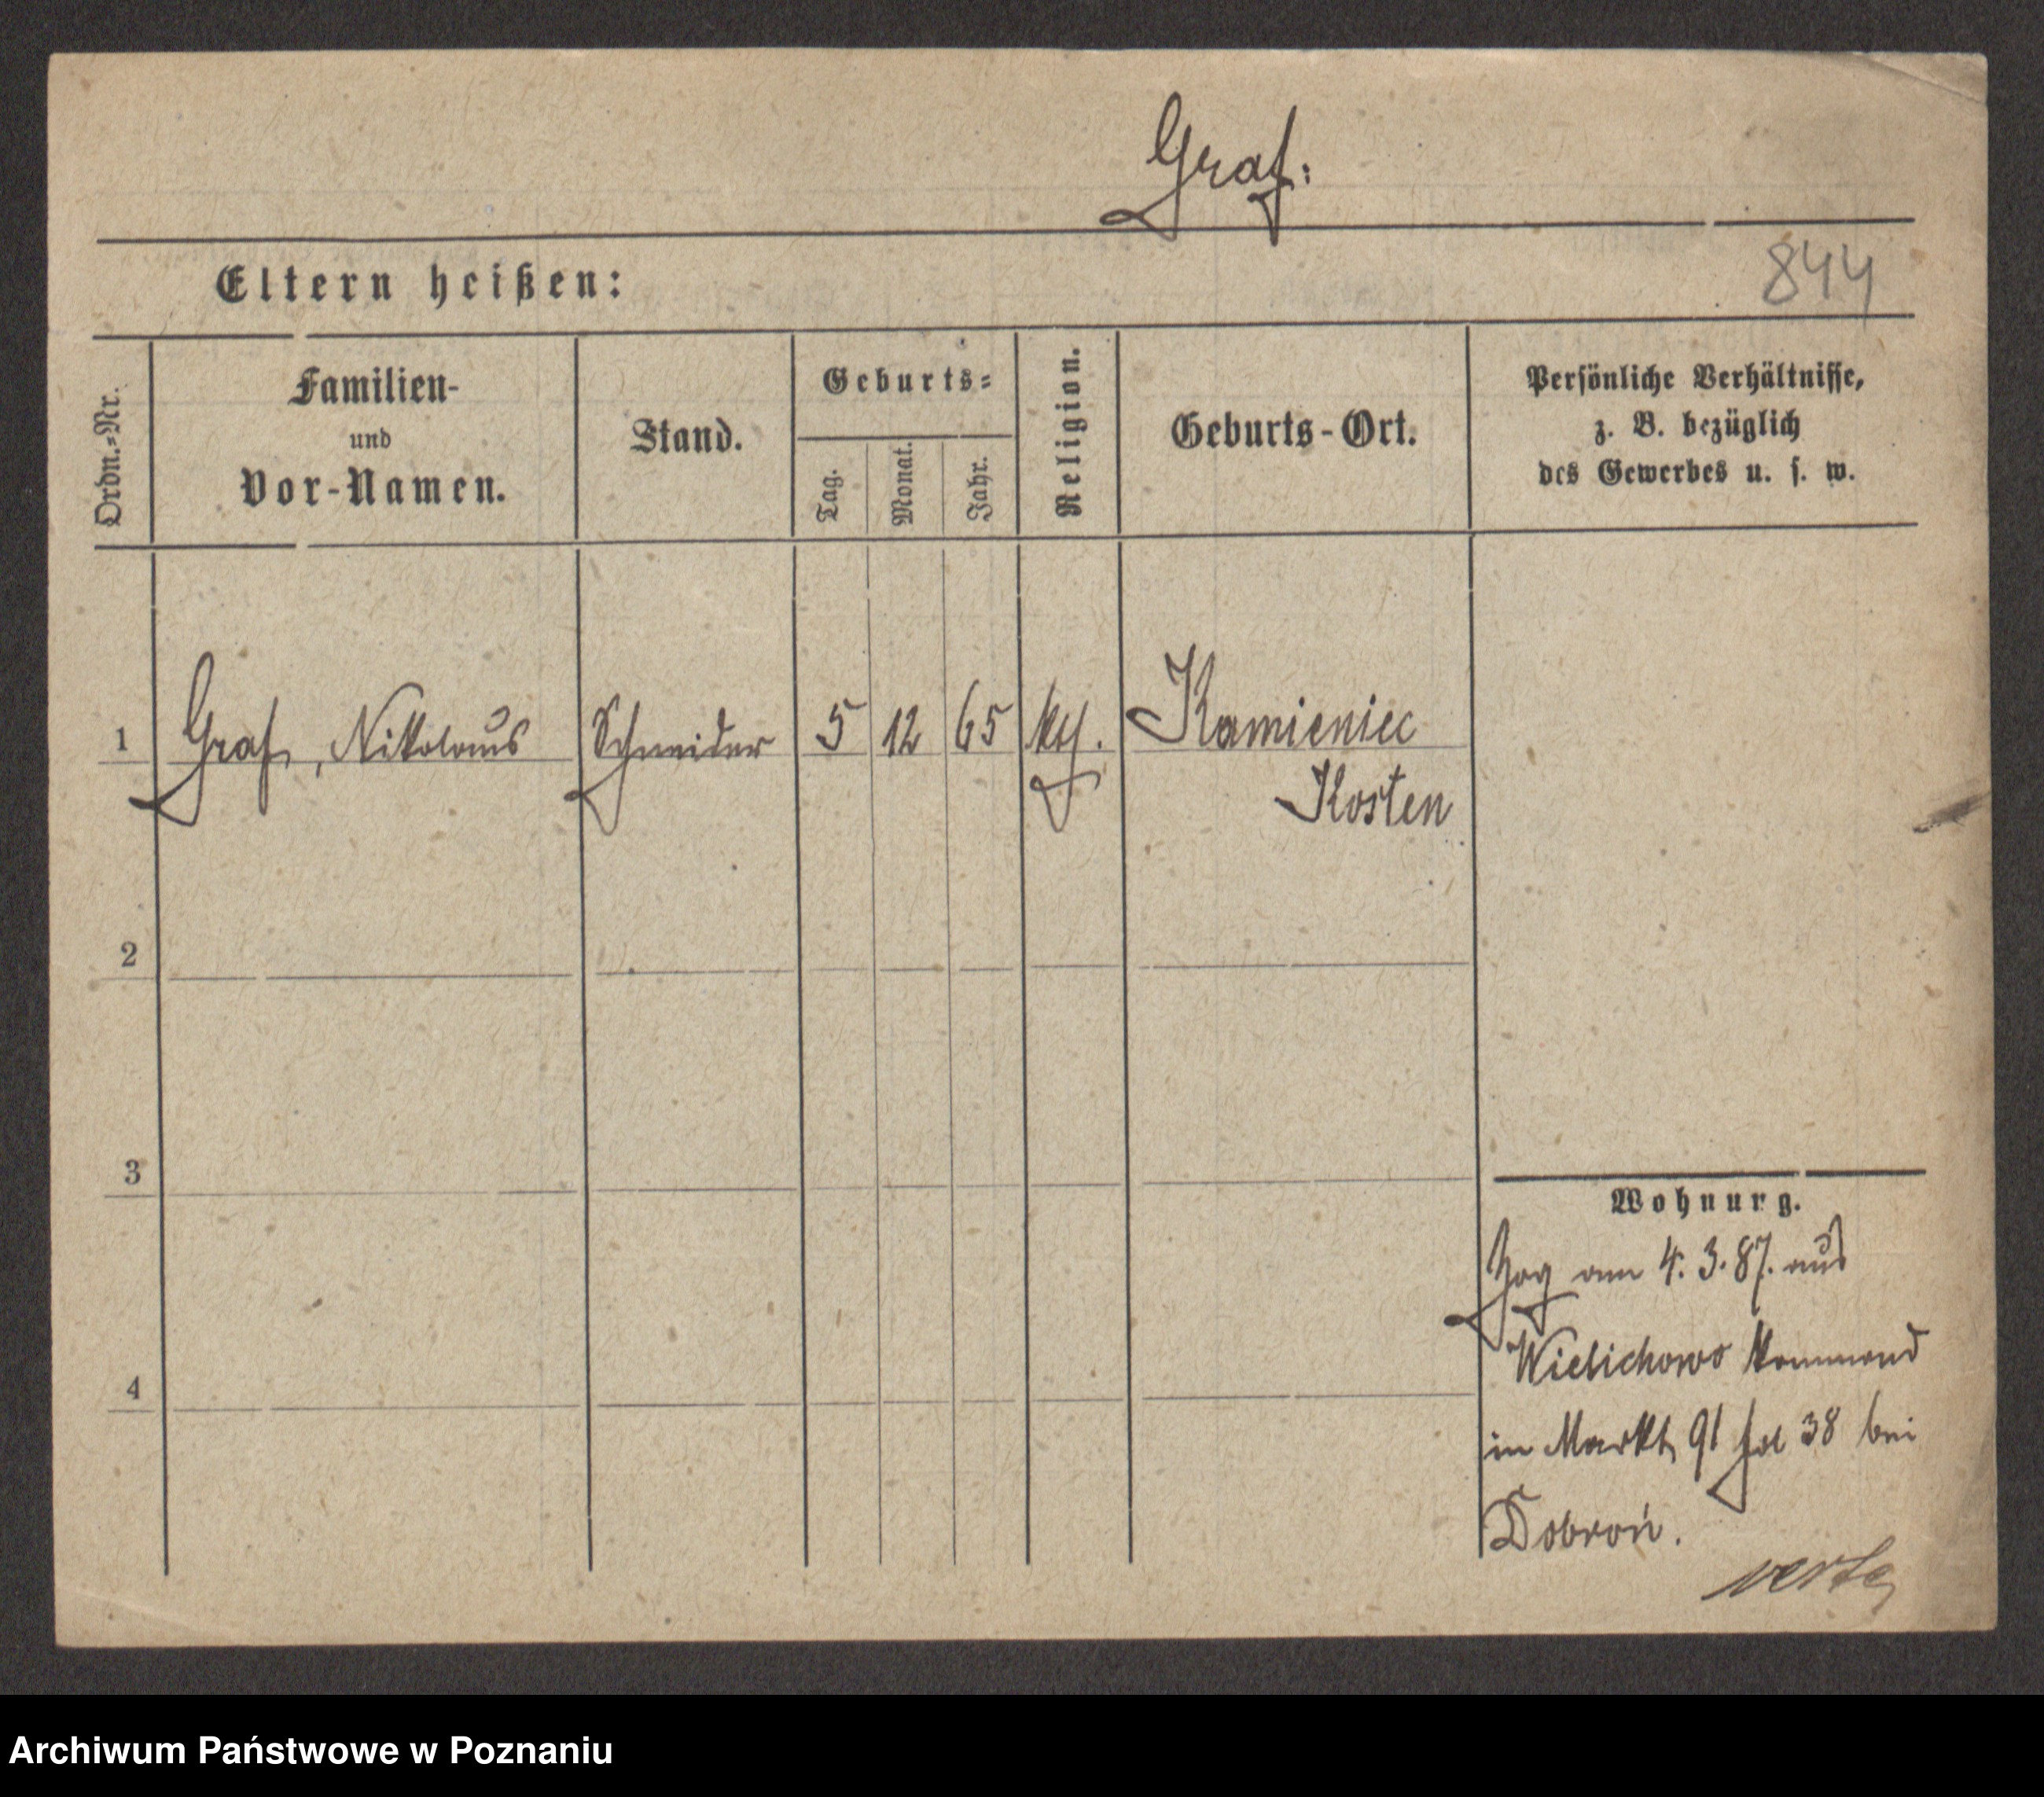 Graf:
Eltern heißen:
844
Ordn.=Nr.
Familien-
und
Vor-Namen.
Stand.
Geburts=
Tag.
Monat.
Jahr.
Religion.
Geburts-Ort.
Persönliche Verhältnisse,
z. B. bezüglich
des Gewerbes u. s. w.
1 Graf, Nikolaus Schneider 5 12 65 kth. Kamieniec
Kosten
2
3
4
Wohnung.
Zog am 4. 3. 87. aus
Wielichowo kommend
in Markt 91 fol 38 bei
Dobroń.
verte
Archiwum Państwowe w Poznaniu